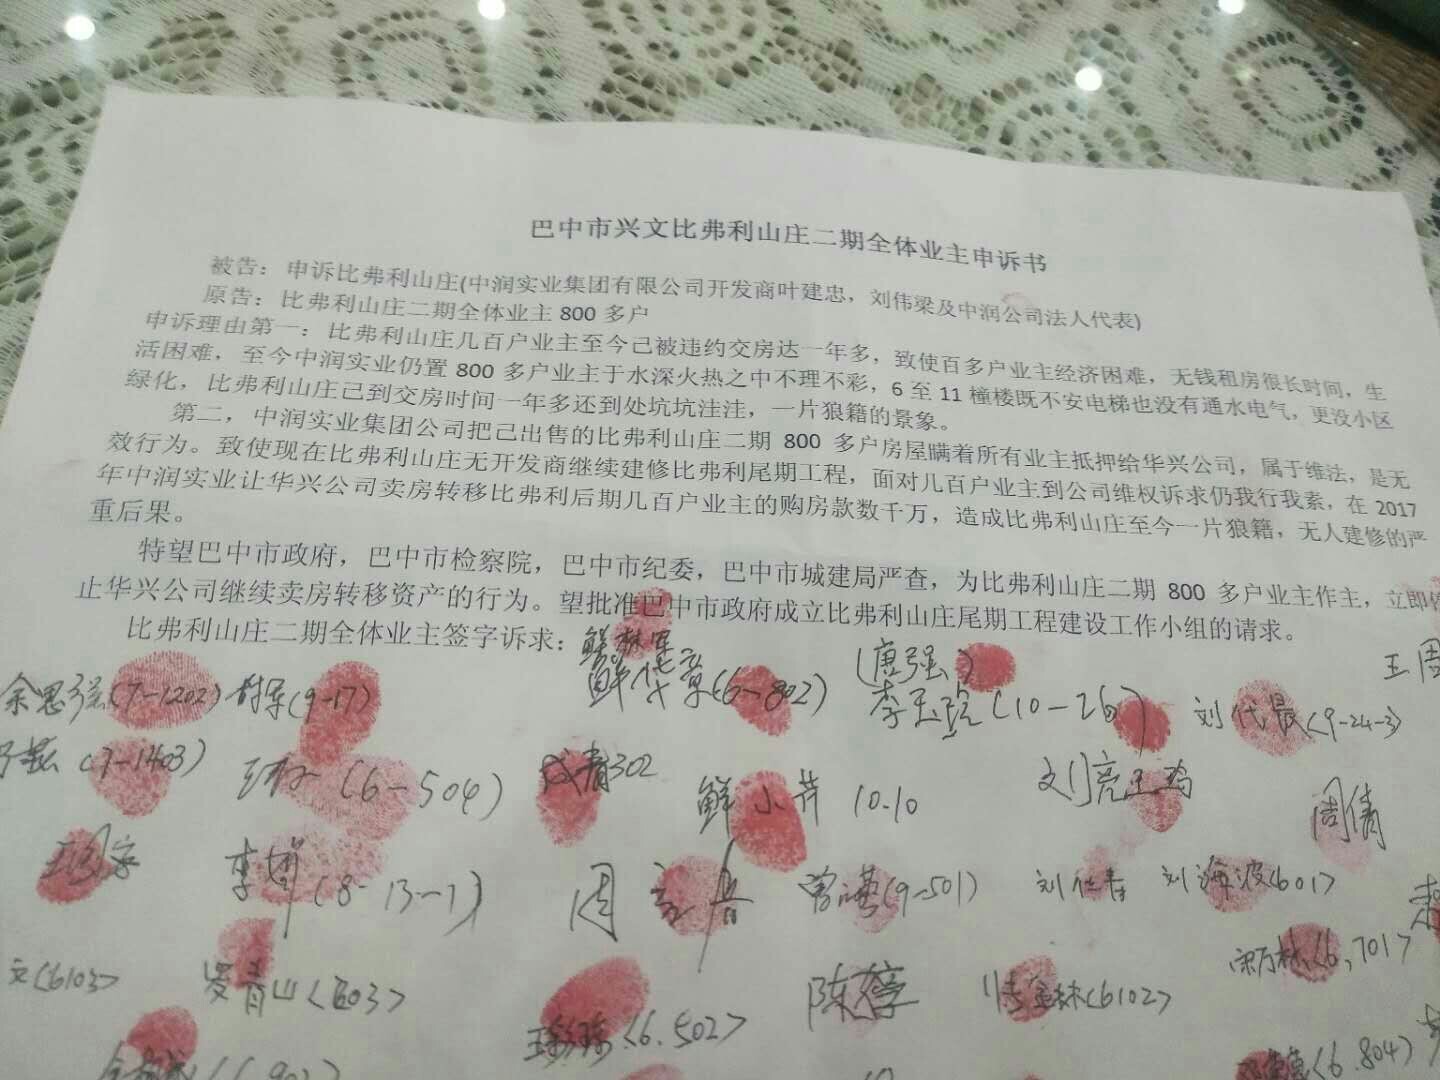 巴中市兴文比弗利山庄二期全体业主申诉书
被告：申诉比弗利山庄(中润实业集团有限公司开发商叶建忠，刘伟梁及中润公司法人代表)
原告：比弗利山庄二期全体业主 800 多户
申诉理由第一：比弗利山庄几百户业主至今己被违约交房达一年多，致使百多户业主经济困难，无钱租房很长时间，生
活困难，至今中润实业仍置 800 多户业主于水深火热之中不理不彩，6 至 11 橦楼既不安电梯也没有通水电气，更没小区
绿化，比弗利山庄己到交房时间一年多还到处坑坑洼洼，一片狼籍的景象。
第二，中润实业集团公司把己出售的比弗利山庄二期 800 多户房屋瞒着所有业主抵押给华兴公司，属于维法，是无
效行为。致使现在比弗利山庄无开发商继续建修比弗利尾期工程，面对几百户业主到公司维权诉求仍我行我素，在 2017
年中润实业让华兴公司卖房转移比弗利后期几百户业主的购房款数千万，造成比弗利山庄至今一片狼籍，无人建修的严
重后果。
特望巴中市政府，巴中市检察院，巴中市纪委，巴中市城建局严查，为比弗利山庄二期 800 多户业主作主，立即停
止华兴公司继续卖房转移资产的行为。望批准巴中市政府成立比弗利山庄尾期工程建设工作小组的请求。
比弗利山庄二期全体业主签字诉求：
(唐强)
(7-1202) (9-17) (6-802) (10-26) 刘代最(9-24-3)
(7-1403) (6-504) 302 鲜小芹 10.10 周倩
(8-13-1) (9-501) 刘海波(601)
文(6103) 罗青山(603) 陈 (6102) (6,701)
(6.502) (6.804)
(6.902)